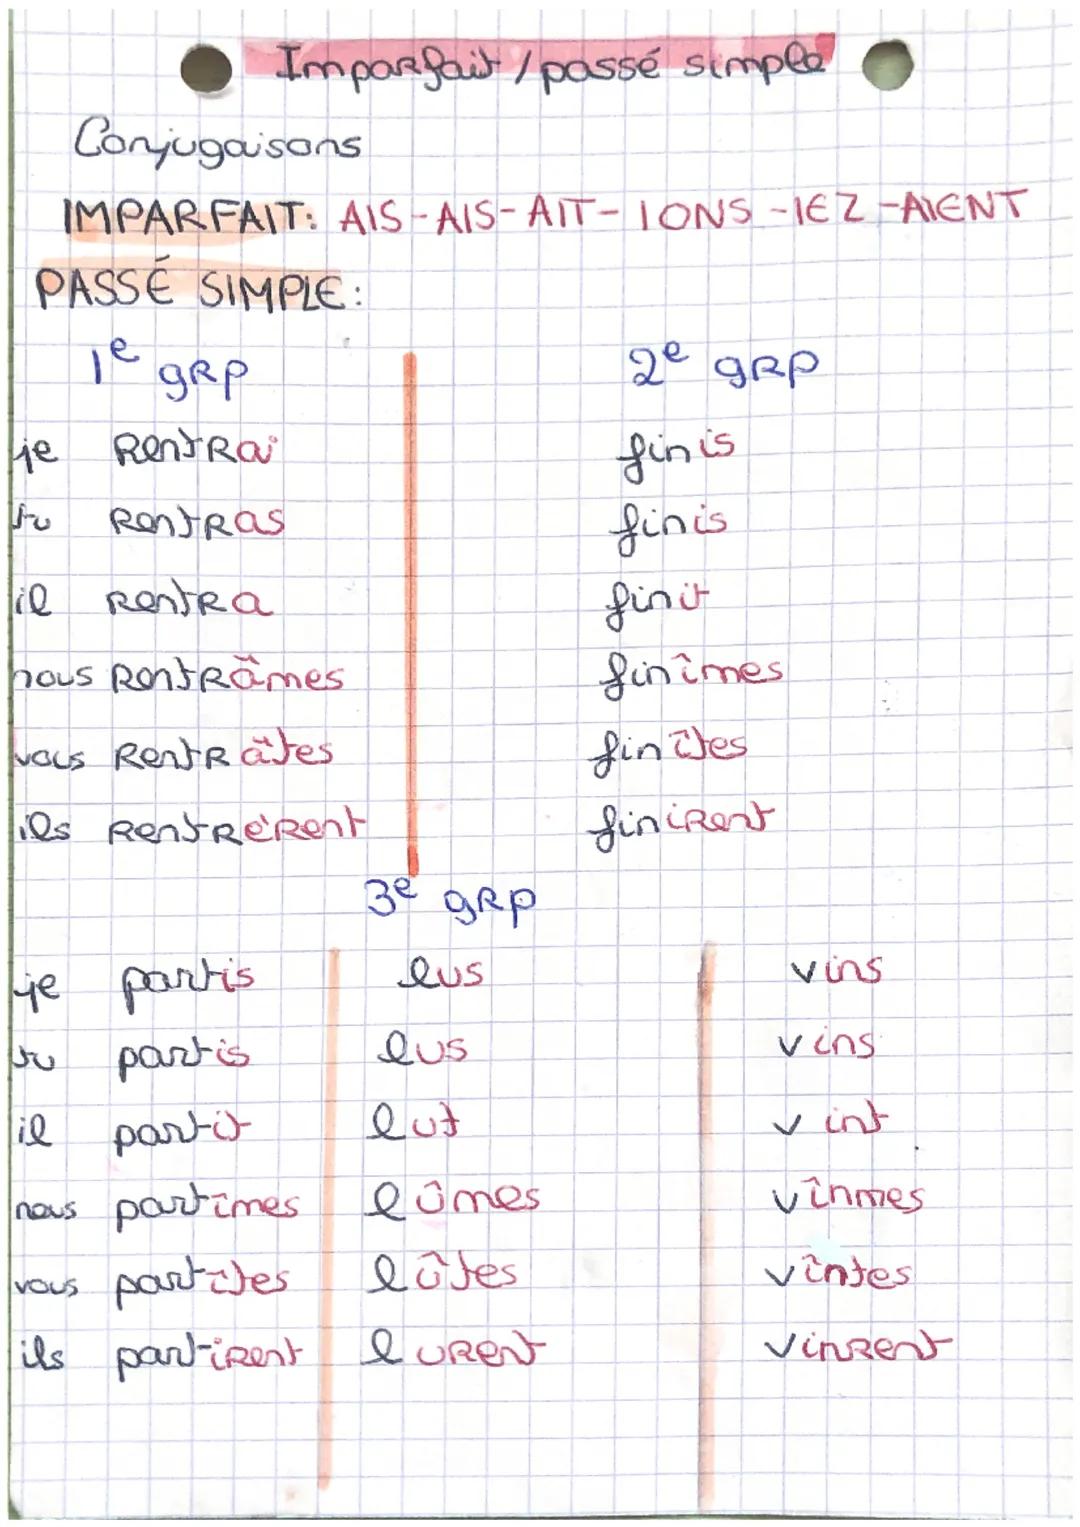 Imparfait / passé simple
Conjugaisons
IMPARFAIT: AIS-AIS-AIT-IONS-IEZ-AIENT
PASSÉ SIMPLE:
1e gRp 2e gRp
je RentRai finis
tu RentRas finis
il RentRa finit
nous RentRâmes finîmes
vous RentRâtes finîtes
ils RentRèRent finiRent
3e gRp
je partis lus vins
tu partis lus vins
il partit lut vint
nous partîmes lûmes vînmes
vous partîtes lûtes vîntes
ils partiRent luRent vinRent